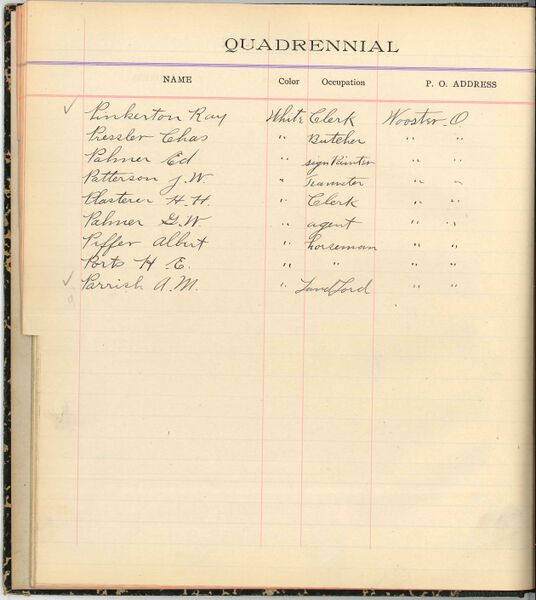 QUADRENNIAL
NAME Color Occupation P. O. ADDRESS
✓ Pinkerton Ray White Clerk Wooster O
Pressler Chas " Butcher " "
Palmer Ed " sign Painter " "
Patterson J. W. " Teamster " "
Plasterer H. H. " Clerk " "
Palmer G. W. " agent " "
Piffer Albert " horseman " "
Ports H. E. " " " "
✓ Parrish A. M. " Land Lord " "